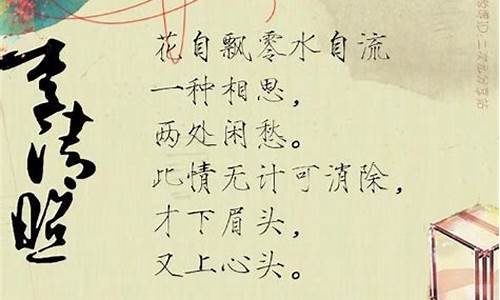 花自飘零水自流
一种相思，
两处闲愁。
此情无计可消除，
才下眉头，
又上心头。
李清照